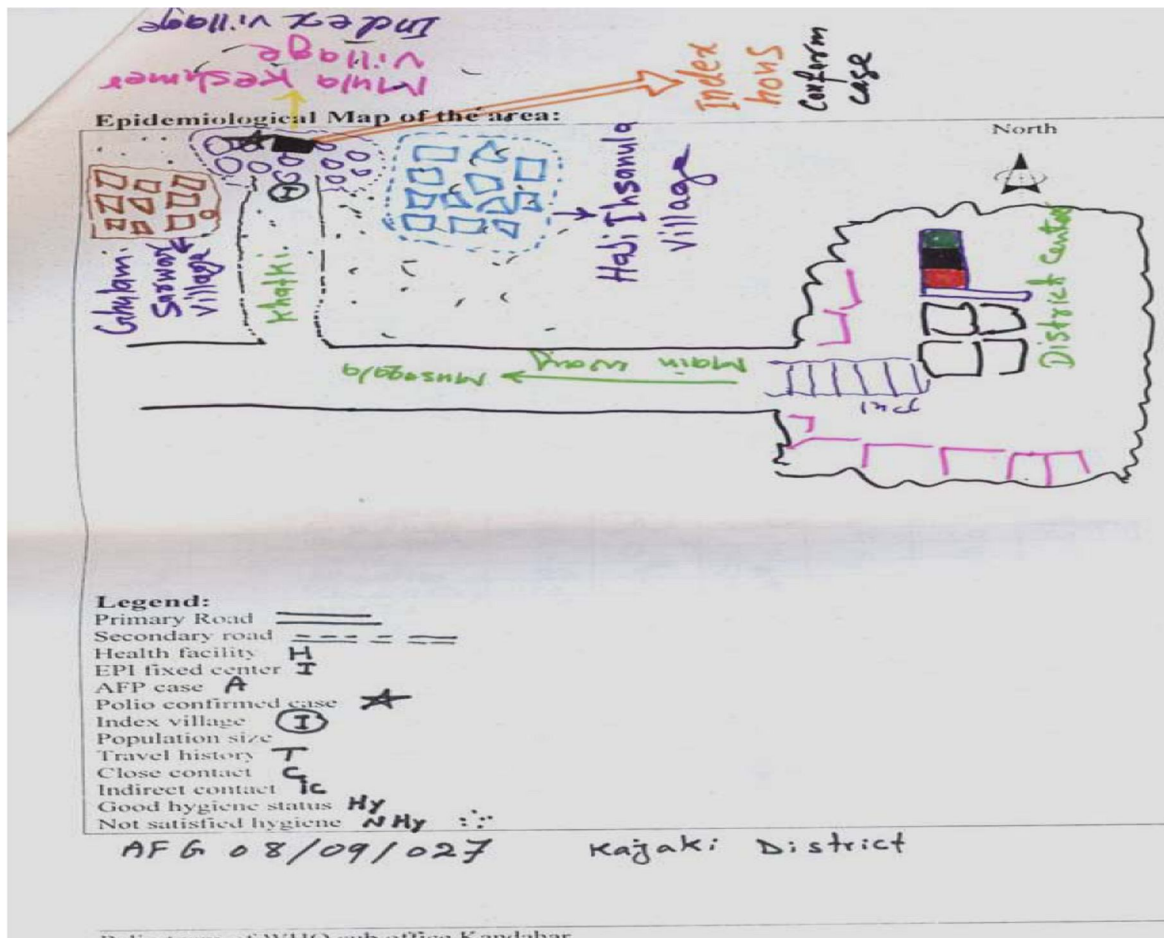 Index village
Mula Keshmer
village
Index
hous
Conform
case
Epidemiological Map of the area:
North
I
Ghulam
Sarwar
village
Khatki
Haji Ihsanula
village
District Center
Main way
Musaqala
Legend:
Primary Road
Secondary road
Health facility H
EPI fixed center I
AFP case A
Polio confirmed case
Index village I
Population size
Travel history T
Close contact C
Indirect contact ic
Good hygiene status Hy
Not satisfied hygiene N Hy
AFG 08/09/027 Kajaki District
WHO sub office Kandahar